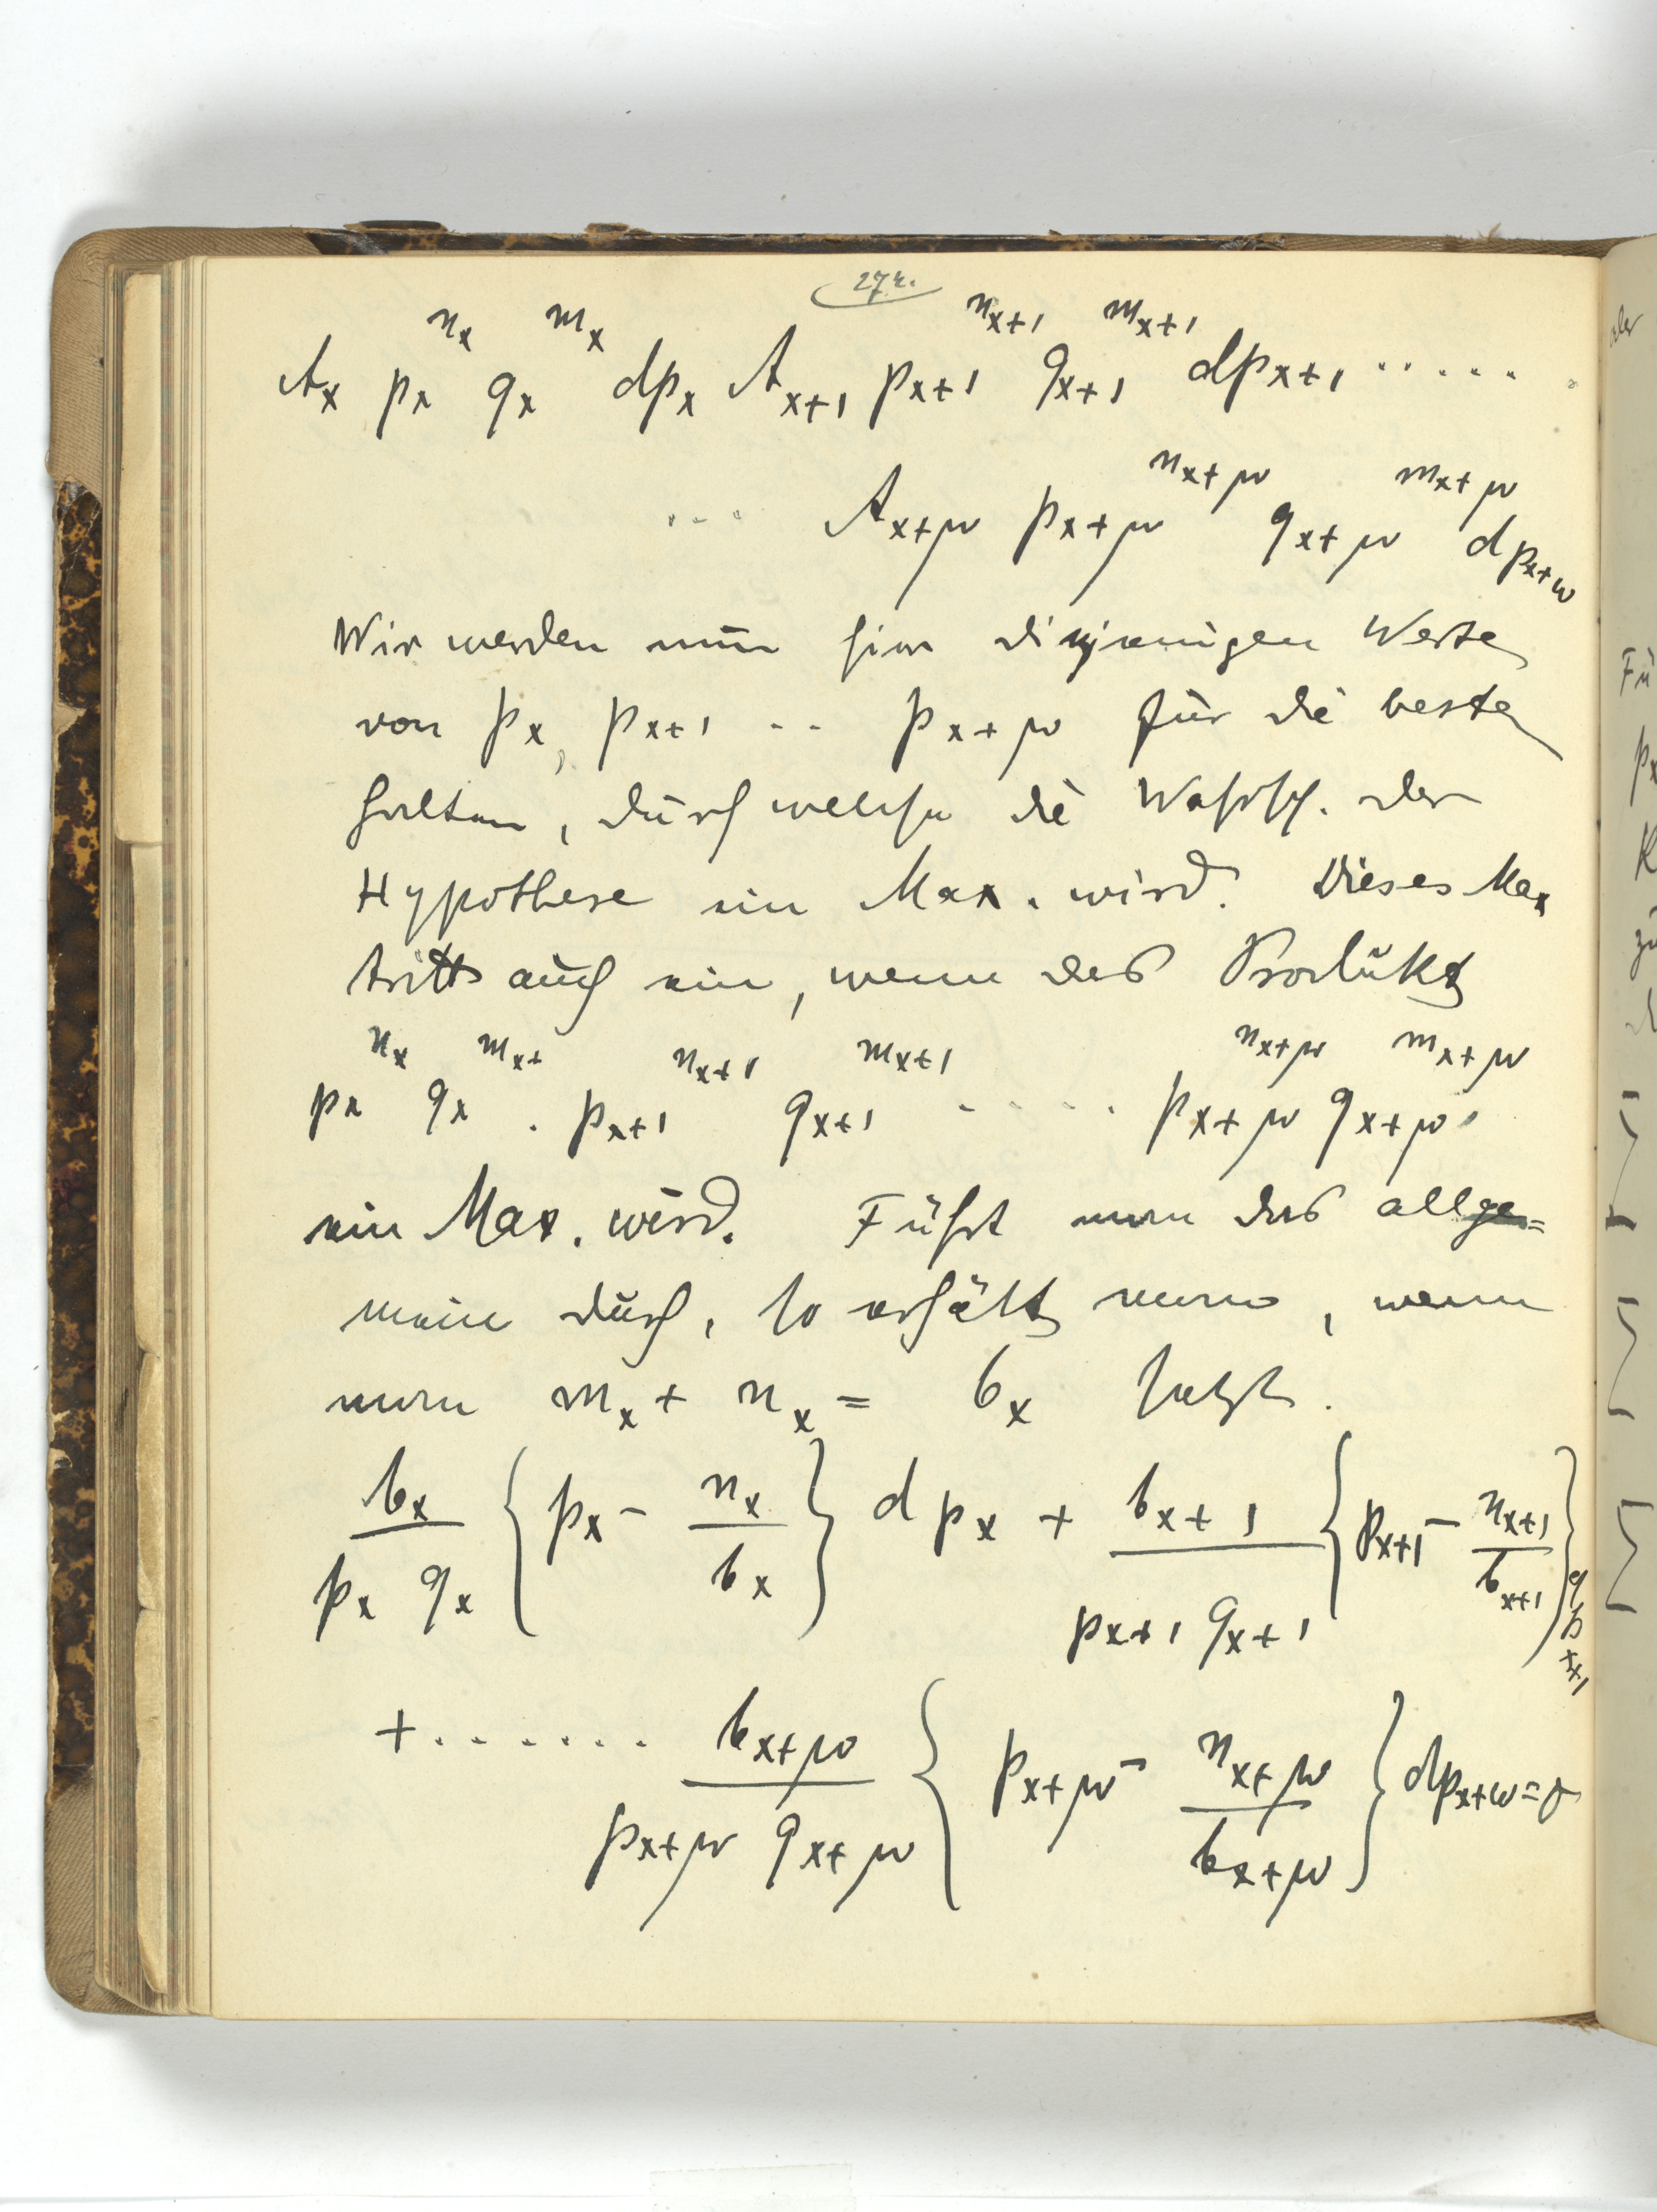 274.
A_x p_x^{n_x} q_x^{m_x} dp_x A_{x+1} p_{x+1}^{n_{x+1}} q_{x+1}^{m_{x+1}} dp_{x+1} .....
... A_{x+w} p_{x+w}^{n_{x+w}} q_{x+w}^{m_{x+w}} dp_{x+w}
Wir werden nun hier diejenigen Werte
von p_x, p_{x+1} .. p_{x+w} für die besten
halten, durch welche die Wahrsch. der
Hypothese ein Max. wird. Dieses Max
tritt auch ein, wenn das Produkt
p_x^{n_x} q_x^{m_x+} . p_{x+1}^{n_{x+1}} q_{x+1}^{m_{x+1}} ..... p_{x+w}^{n_{x+w}} q_{x+w}^{m_{x+w}}
ein Max. wird. Führt man das allge=
mein durch, so erhält man, wenn
man m_x + n_x = b_x setzt.
b_x / p_x q_x { p_x - n_x / b_x } dp_x + b_{x+1} / p_{x+1} q_{x+1} { p_{x+1} - n_{x+1} / b_{x+1} } dp_{x+1}
+ ....... b_{x+w} / p_{x+w} q_{x+w} { p_{x+w} - n_{x+w} / b_{x+w} } dp_{x+w} = 0